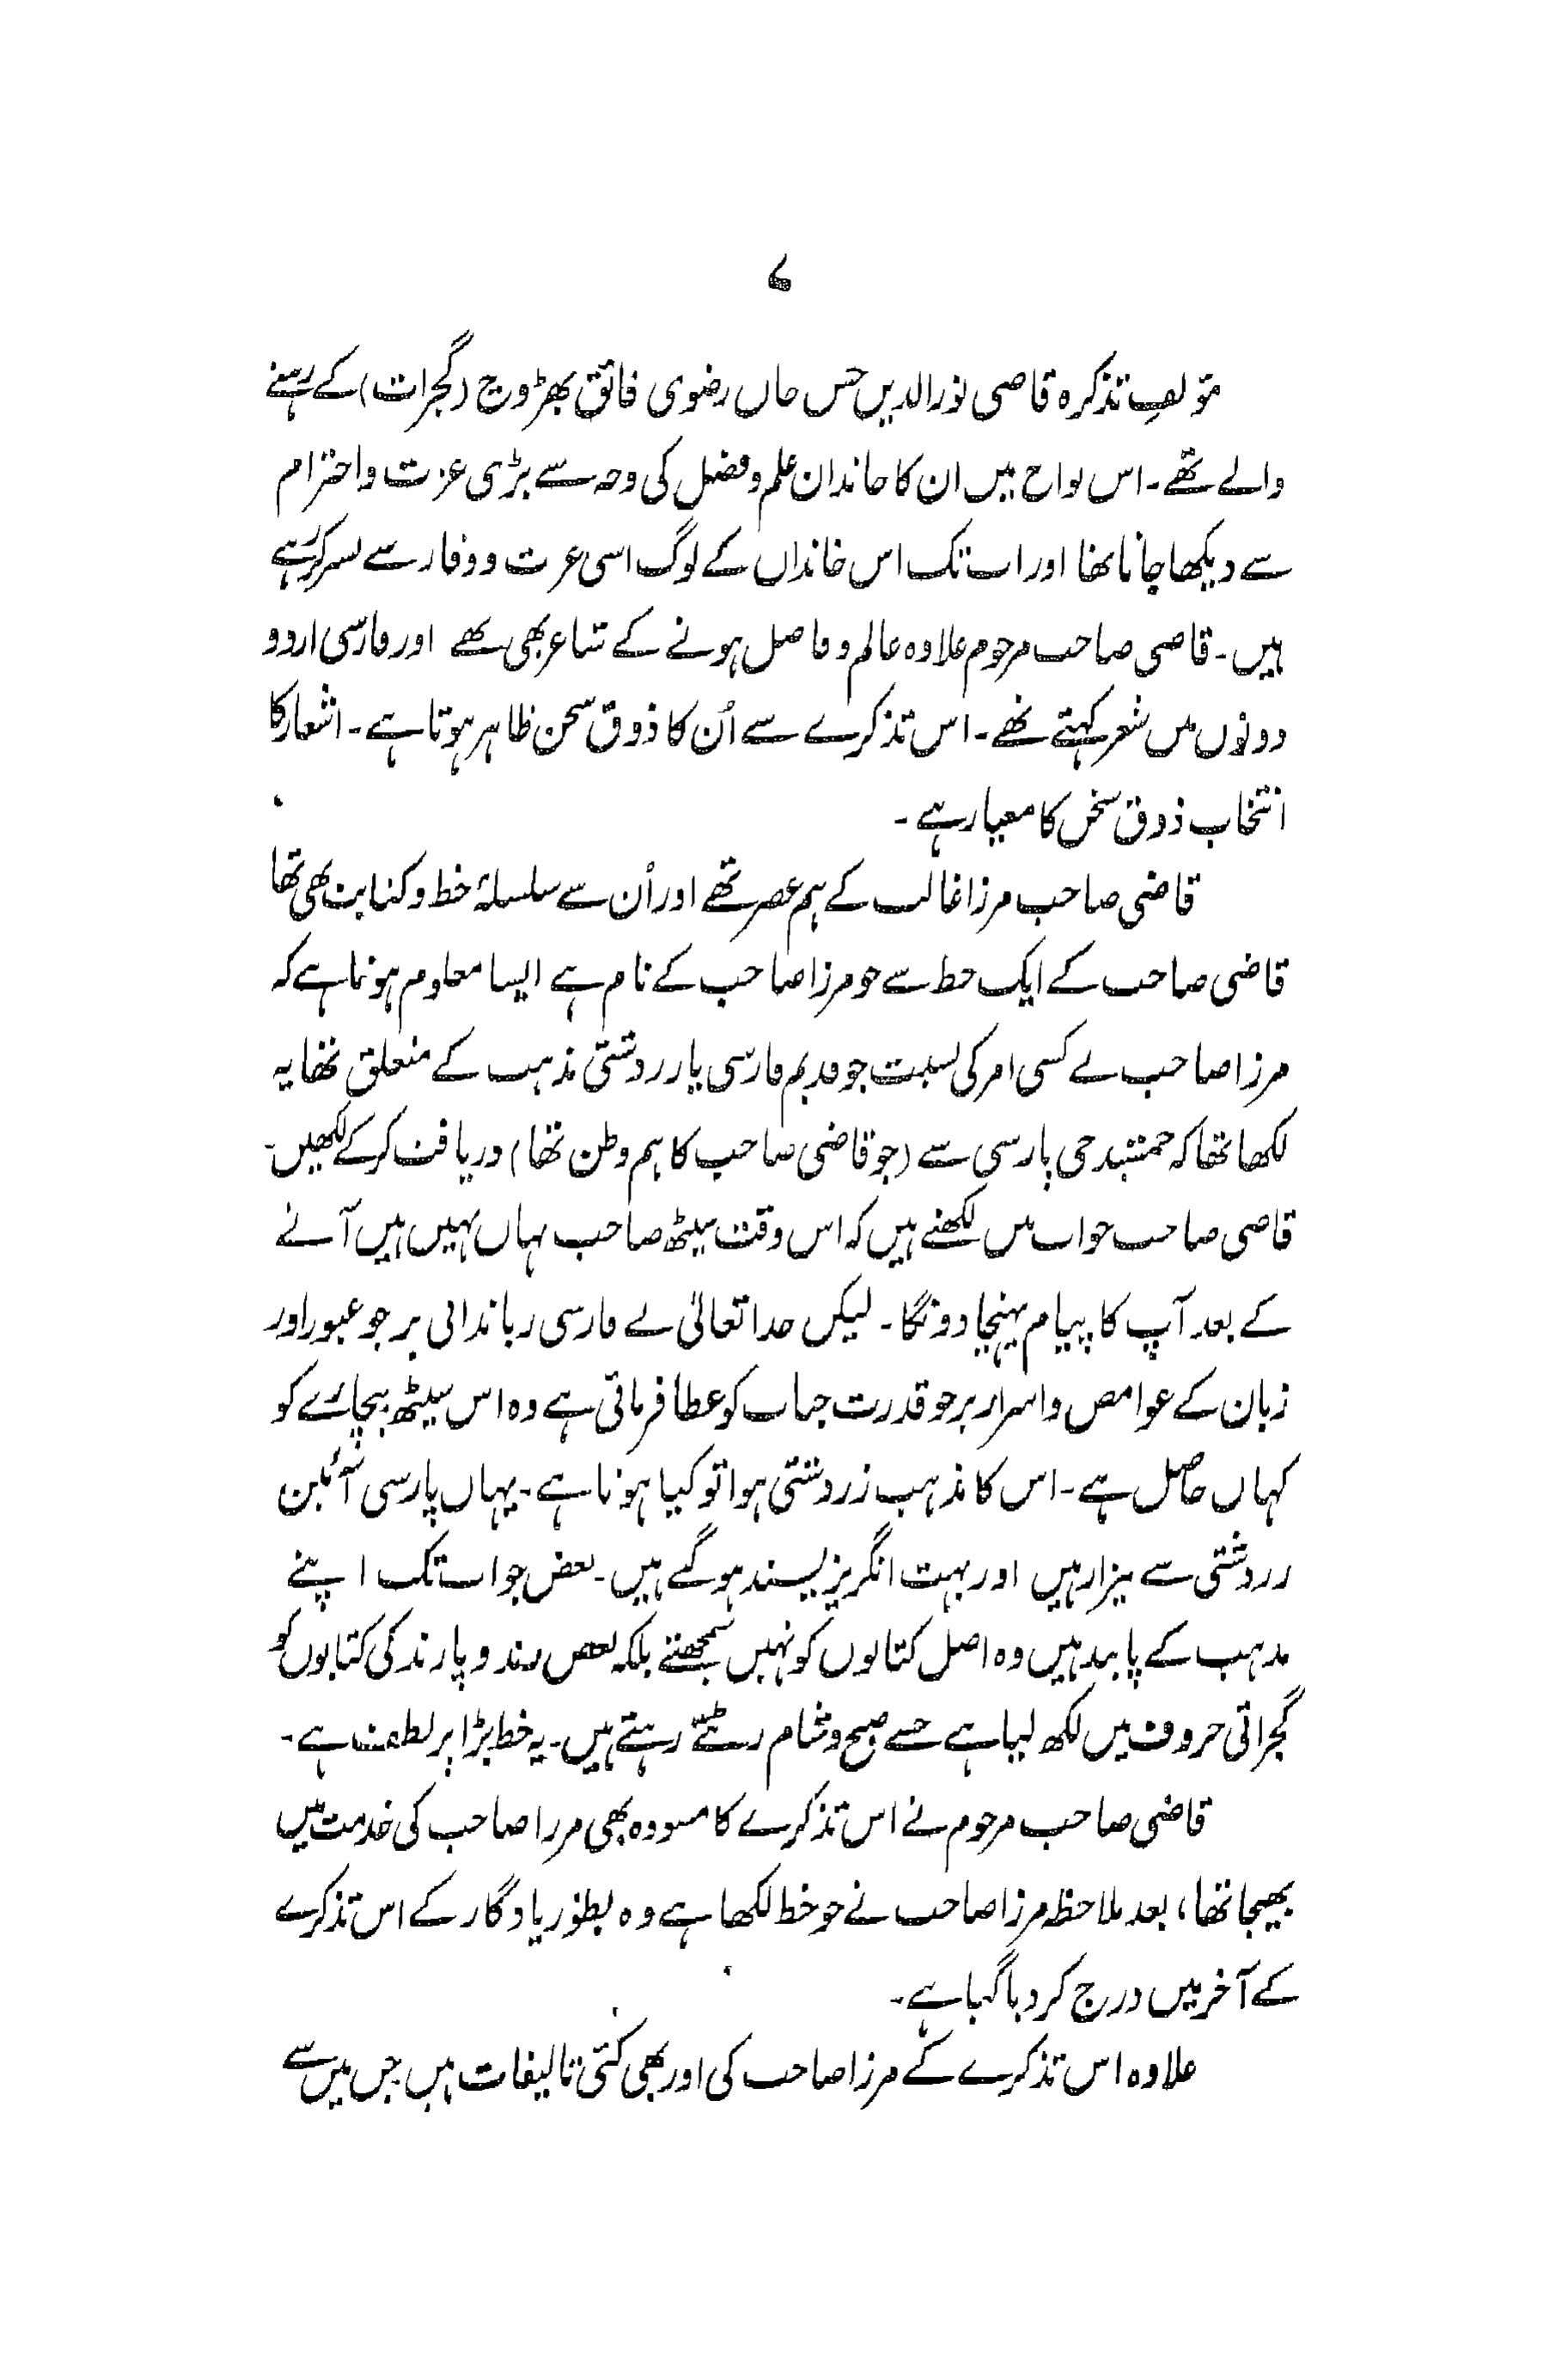 ۷
مؤلفِ تذکرہ قاضی نورالدین حسن خاں رضوی فائق بھڑوچ (گجرات) کے رہنے
والے تھے۔ اس نواح میں ان کا خاندان علم و فضل کی وجہ سے بڑی عزت و احترام
سے دیکھا جاتا تھا اور اب تک اس خاندان کے لوگ اسی عزت و وقار سے بسر کر رہے
ہیں۔ قاضی صاحب مرحوم علاوہ عالم و فاضل ہونے کے شاعر بھی تھے اور فارسی اردو
دونوں میں شعر کہتے تھے۔ اس تذکرے سے اُن کا ذوق سخن ظاہر ہوتا ہے۔ اشعار کا
انتخاب ذوق سخن کا معیار ہے۔
قاضی صاحب مرزا غالب کے ہم عصر تھے اور اُن سے سلسلۂ خط و کتابت بھی تھا
قاضی صاحب کے ایک خط سے جو مرزا صاحب کے نام ہے ایسا معلوم ہوتا ہے کہ
مرزا صاحب نے کسی امر کی نسبت جو قدیم فارسی یا زردشتی مذہب کے متعلق تھا یہ
لکھا تھا کہ جمشید جی پارسی سے (جو قاضی صاحب کا ہم وطن تھا) دریافت کر کے لکھیں۔
قاضی صاحب جواب میں لکھتے ہیں کہ اس وقت سیٹھ صاحب یہاں نہیں ہیں آنے
کے بعد آپ کا پیام پہنچا دونگا۔ لیکن خدا تعالیٰ نے فارسی زباندانی پر جو عبور اور
زبان کے غوامض و اسرار پر جو قدرت جناب کو عطا فرمائی ہے وہ اس سیٹھ بیچارے کو
کہاں حاصل ہے۔ اس کا مذہب زردشتی ہوا تو کیا ہوتا ہے۔ یہاں پارسی آئین
زردشتی سے بیزار ہیں اور بہت انگریز پسند ہو گے ہیں۔ بعض جو اب تک اپنے
مذہب کے پابند ہیں وہ اصل کتابوں کو نہیں سمجھتے بلکہ بعض زند و پازند کی کتابوں کو
گجراتی حروف میں لکھ لیا ہے جسے صبح و شام رٹتے رہتے ہیں۔ یہ خط بڑا پر لطف ہے۔
قاضی صاحب مرحوم نے اس تذکرے کا مسودہ بھی مرزا صاحب کی خدمت میں
بھیجا تھا، بعد ملاحظہ مرزا صاحب نے جو خط لکھا ہے وہ بطور یادگار کے اس تذکرے
کے آخر میں درج کر دیا گیا ہے۔
علاوہ اس تذکرے کے مرزا صاحب کی اور بھی کئی تالیفات ہیں جس میں سے